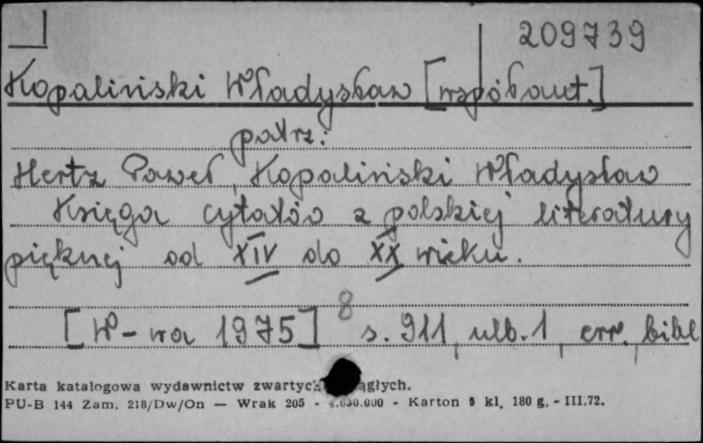 209739
Kopaliński Władysław [współaut.]
patrz:
Hertz Paweł, Kopaliński Władysław
Księga cytatów z polskiej literatury
pięknej od XIV do XX wieku.
8
[W-wa 1975] s. 911, nlb. 1, err., bibl
Karta katalogowa wydawnictw zwartych
PU-B 144 Zam. 218/Dw/On — Wrak 205 - - Karton kl, 180 g. - III.72.